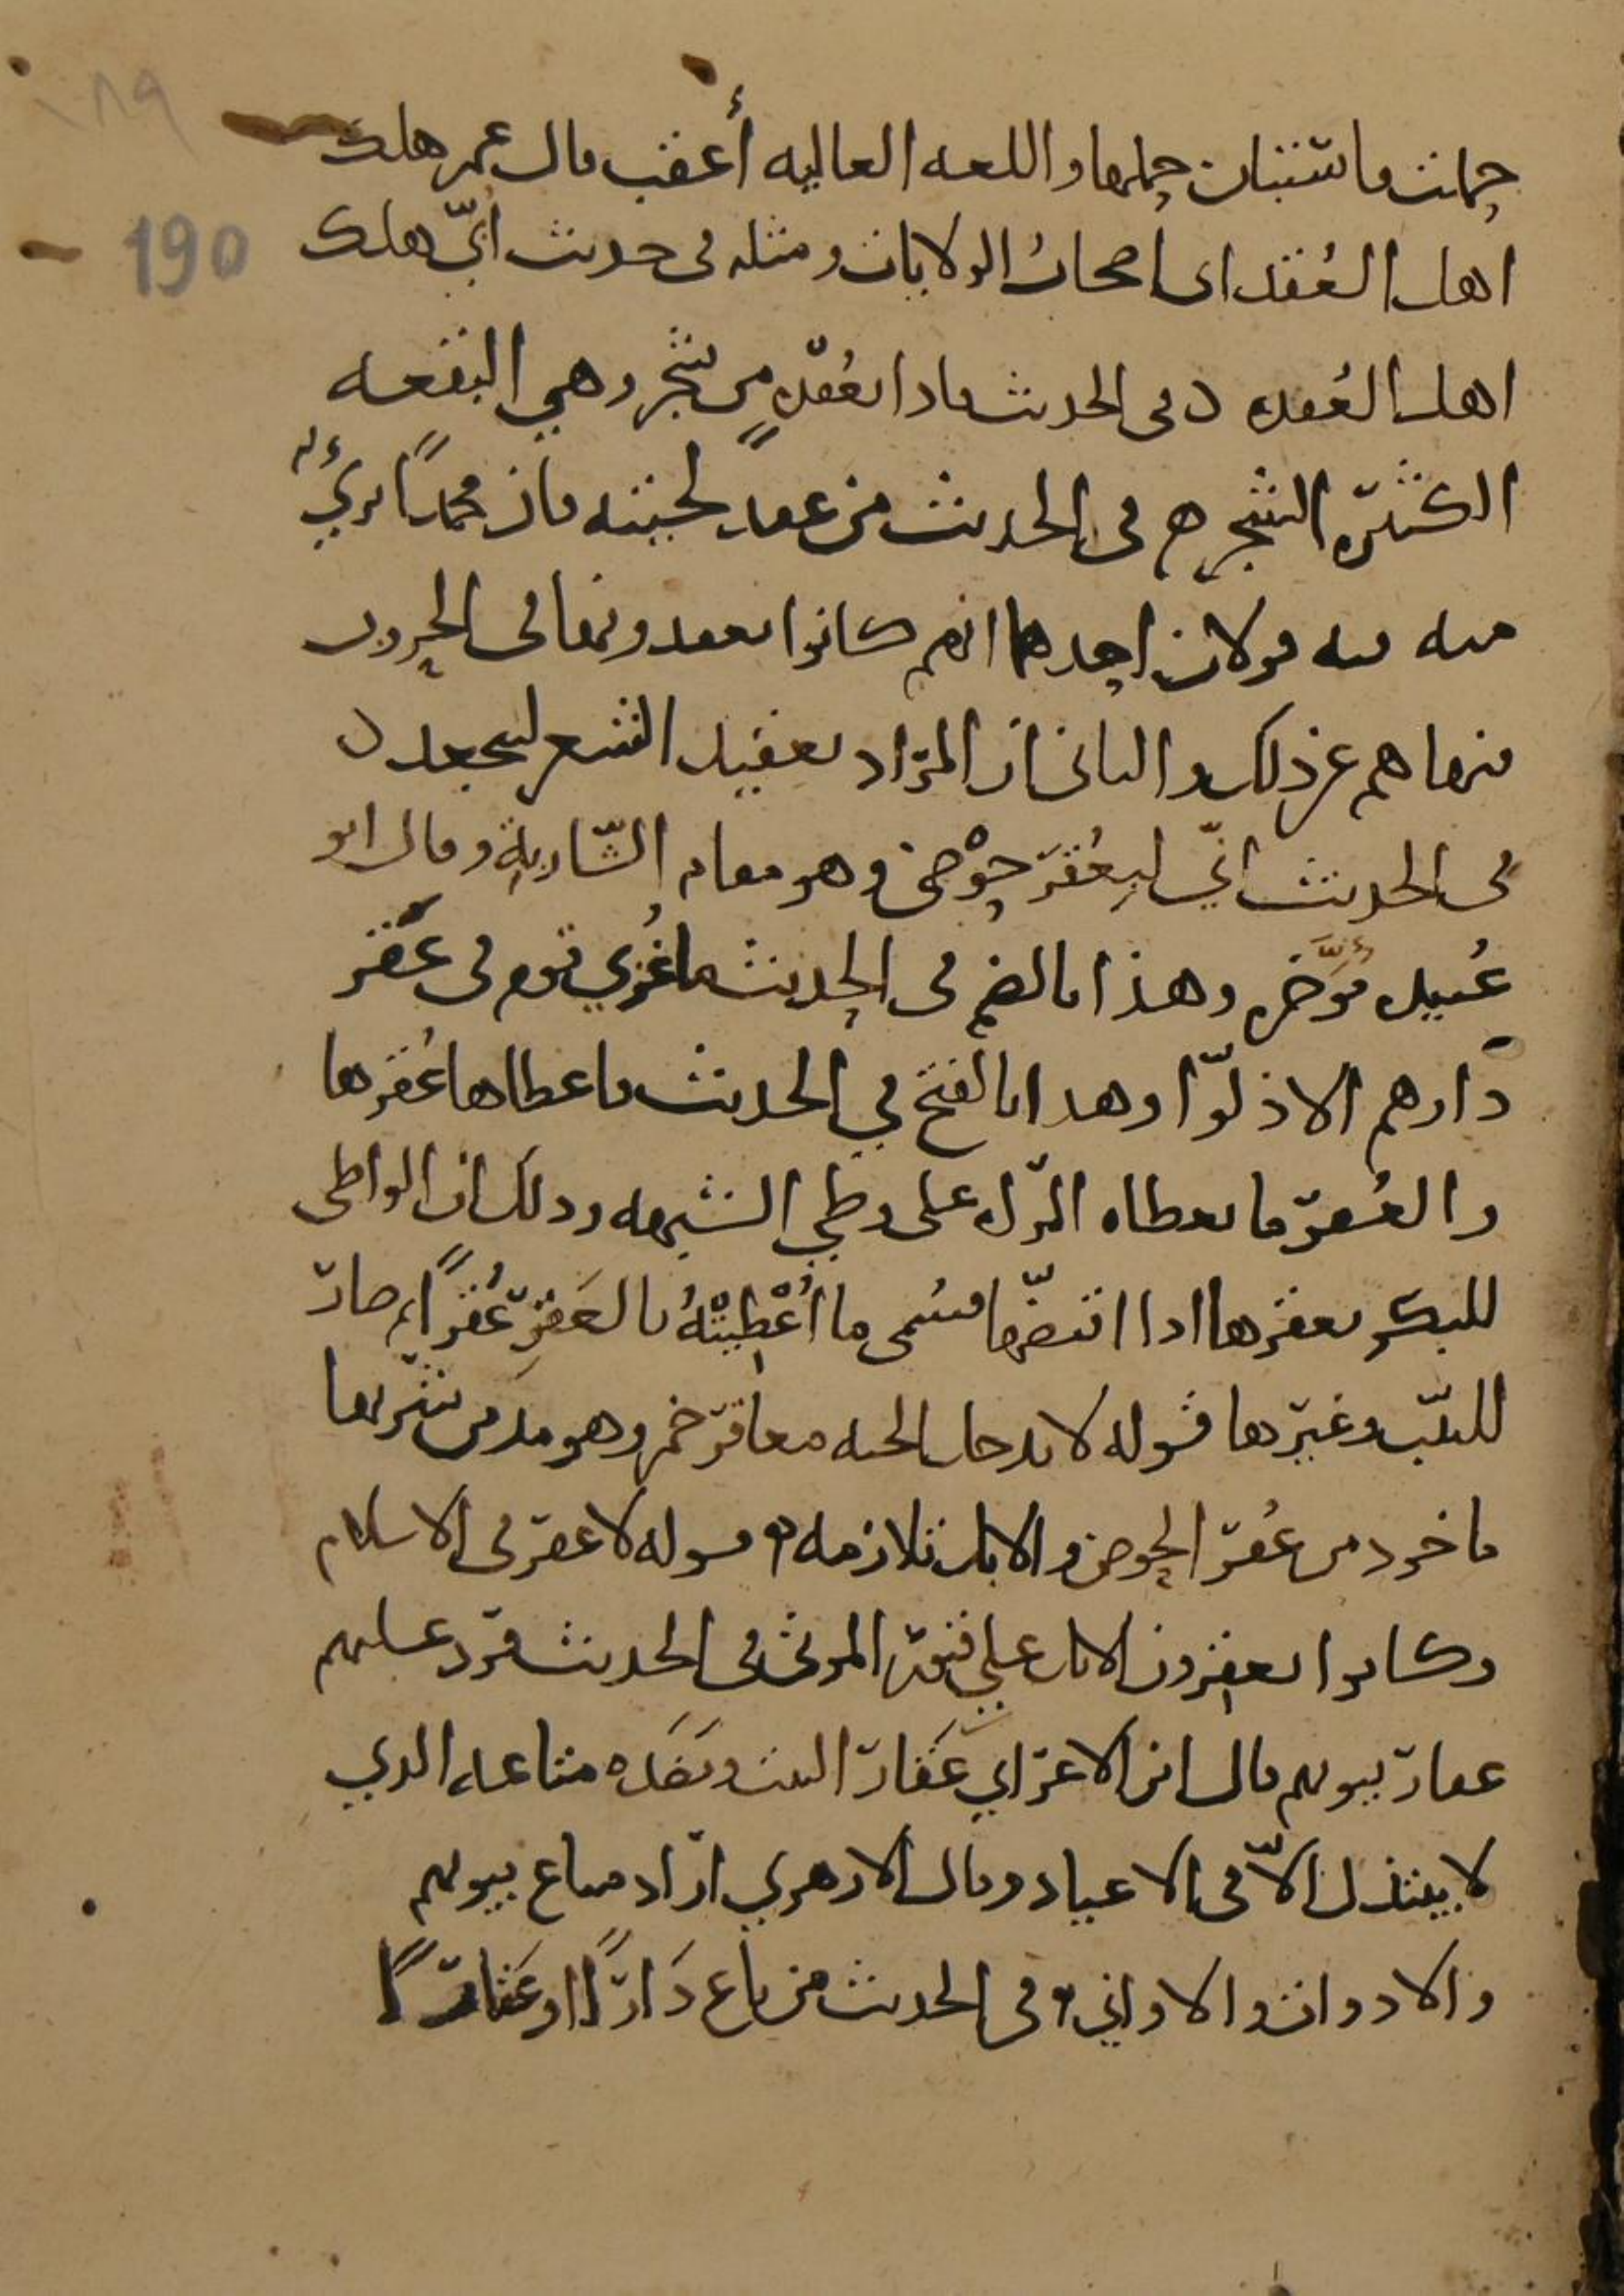 ١٨٩
190
حملت فاستبان حملها واللغه العاليه أعقت قال عمر هلك
اهل العُقد اى اصحابُ الولايات ومثله فى حديث ابيّ هلك
اهل العُقده فى الحديث فاذا بعُقدهٍ من شجر وهي البقعه
الكثيره الشجر فى الحديث من عقد لحيته فان محمدًا برئٌ
منه فيه قولان احدهما انهم كانوا يعقدونها فى الحروب
فنهاهم عن ذلك والثانى ان المراد تعقيد الشعر ليتجعد
فى الحديث انّي لبعُقر حوْضى وهو مقام الشّاربةِ وقال ابو
عُبيد مؤخّره وهذا بالضم فى الحديث ما غُزي قوم فى عَقر
دارهم الا ذلّوا وهذا بالفتح في الحديث فاعطاها عُقرها
والعُقر ما تعطاه المرأه على وطي الشبهه وذلك ان الواطى
للبكر يعقرها اذا افتضّها فسُمى ما أُعْطِيَتْهُ بالعَقرِ عُقرًا ثم صار
للثيّب وغيرها قوله لا يدخل الجنه معاقر خمر وهو مدمن شربها
ماخوذ من عُقر الحوض والابل تلازمه قوله لا عقر فى الاسلام
وكانوا يعقرون الابل علي قبور الموتى فى الحديث فرد عليهم
عقار بيوتهم قال ابن الاعرابي عَقار البيت ونَضَده متاعه الذي
لا يبتذل الّا فى الاعياد وقال الازهري اراد متاع بيوتهم
والادوات والاواني وفى الحديث من باع دَارًا او عَقارًا